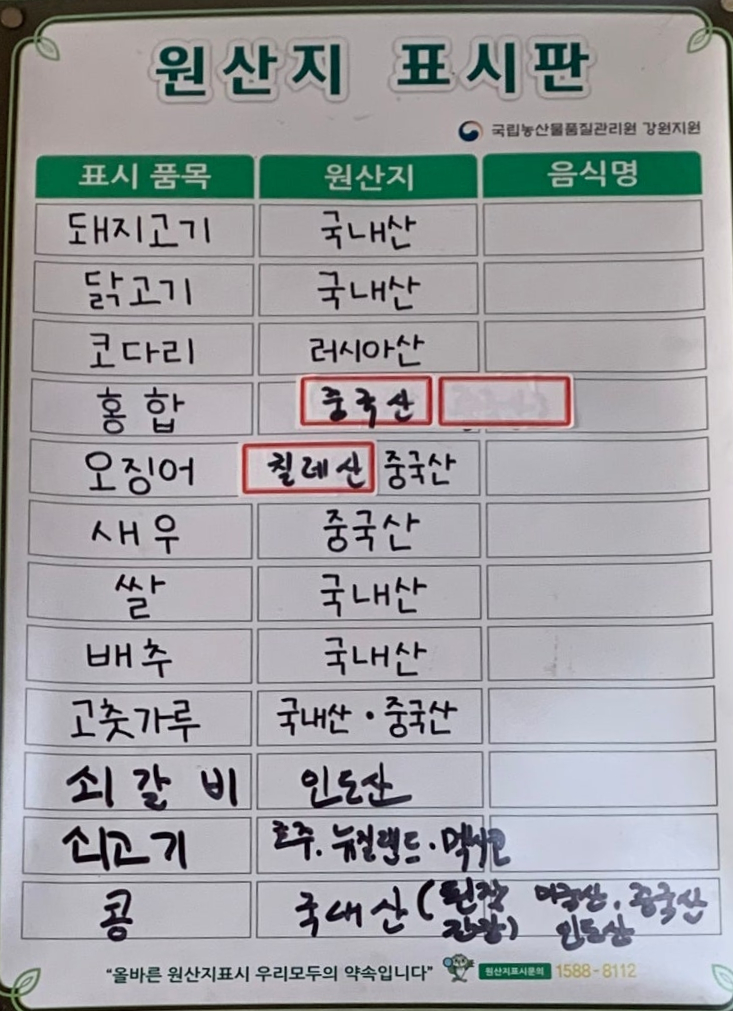 원산지 표시판
국립농산물품질관리원 강원지원
표시 품목 원산지 음식명
돼지고기 국내산
닭고기 국내산
코다리 러시아산
홍합 중국산
오징어 칠레산 중국산
새우 중국산
쌀 국내산
배추 국내산
고춧가루 국내산·중국산
쇠갈비 인도산
쇠고기 호주. 뉴질랜드·멕시코
콩 국내산 (된장 미국산. 중국산
간장) 인도산
"올바른 원산지표시 우리모두의 약속입니다" 원산지표시문의 1588-8112